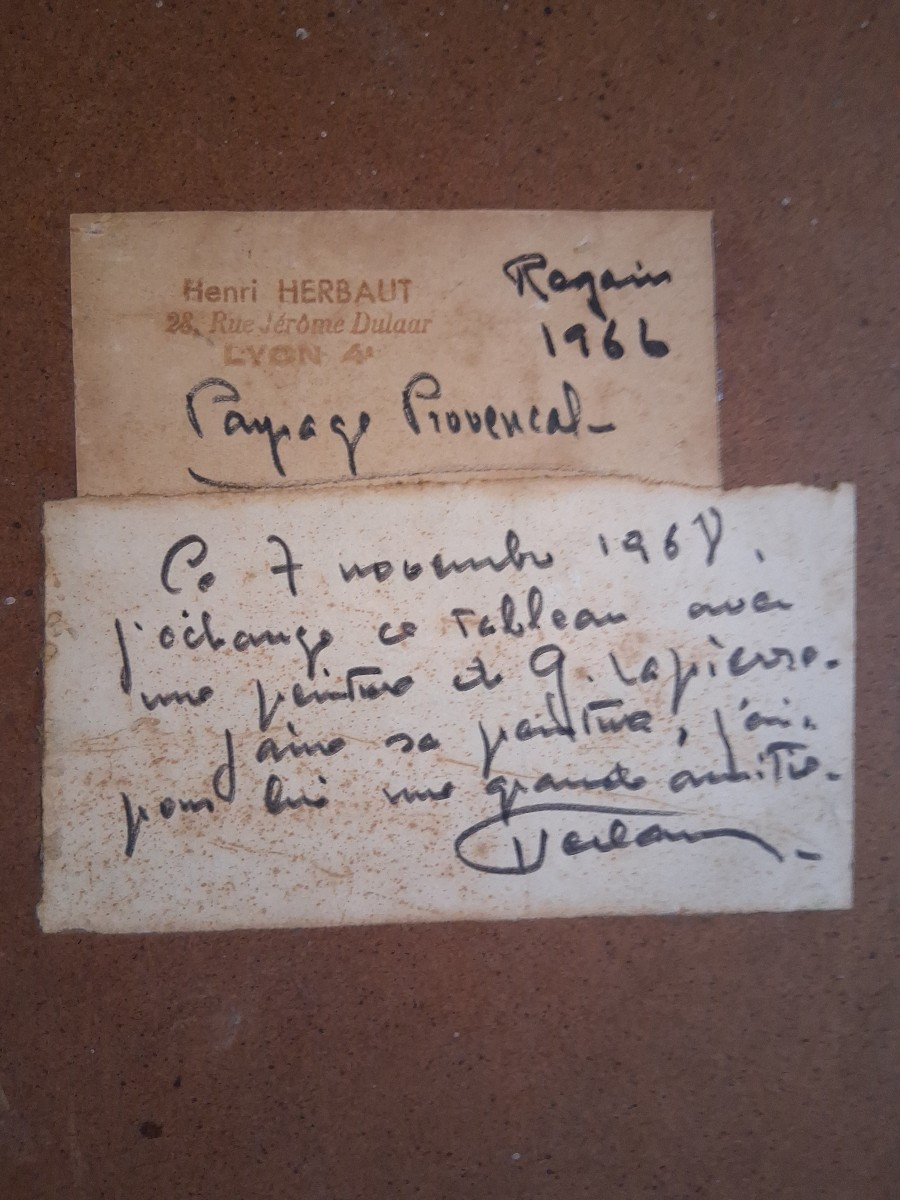 Henri HERBAUT
28, Rue Jérôme Dulaar
LYON 4e
1966
Paysage Provencal_
Ce 7 novembre 1968,
j'échange ce tableau avec
une peinture de G. Lapierre.
J'aime sa peinture, j'ai
pour lui une grande amitié.